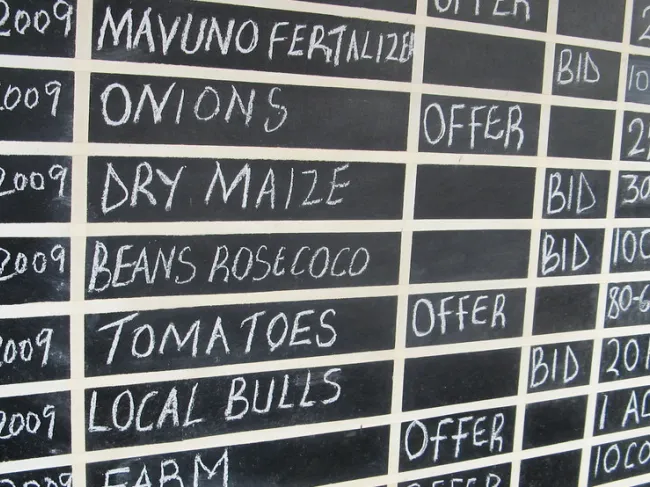 OFFER
2009 MAVUNO FERTALIZER BID 10
2009 ONIONS OFFER 2
2009 DRY MAIZE BID 30
2009 BEANS ROSECOCO BID 100
2009 TOMATOES OFFER 80-6
2009 LOCAL BULLS BID 20
2009 FARM OFFER 1 AC
2009 OFFER 10